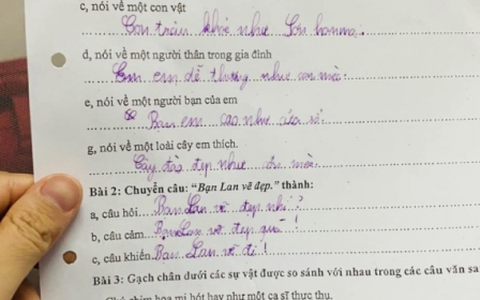 c, nói về một con vật
Con trâu khỏe như
d, nói về một người thân trong gia đình
Em em dễ thương như con mèo.
e, nói về một người bạn của em
Bạn em cao như
g, nói về một loài cây em thích.
Cây đào đẹp như
Bài 2: Chuyển câu: “Bạn Lan vẽ đẹp.” thành:
a, câu hỏi Bạn Lan vẽ đẹp nhỉ?
b, câu cảm Bạn Lan vẽ đẹp quá!
c, câu khiến Bạn Lan vẽ đi!
Bài 3: Gạch chân dưới các sự vật được so sánh với nhau trong các câu văn sa
chim họa mi hót hay như một ca sĩ thực thụ.